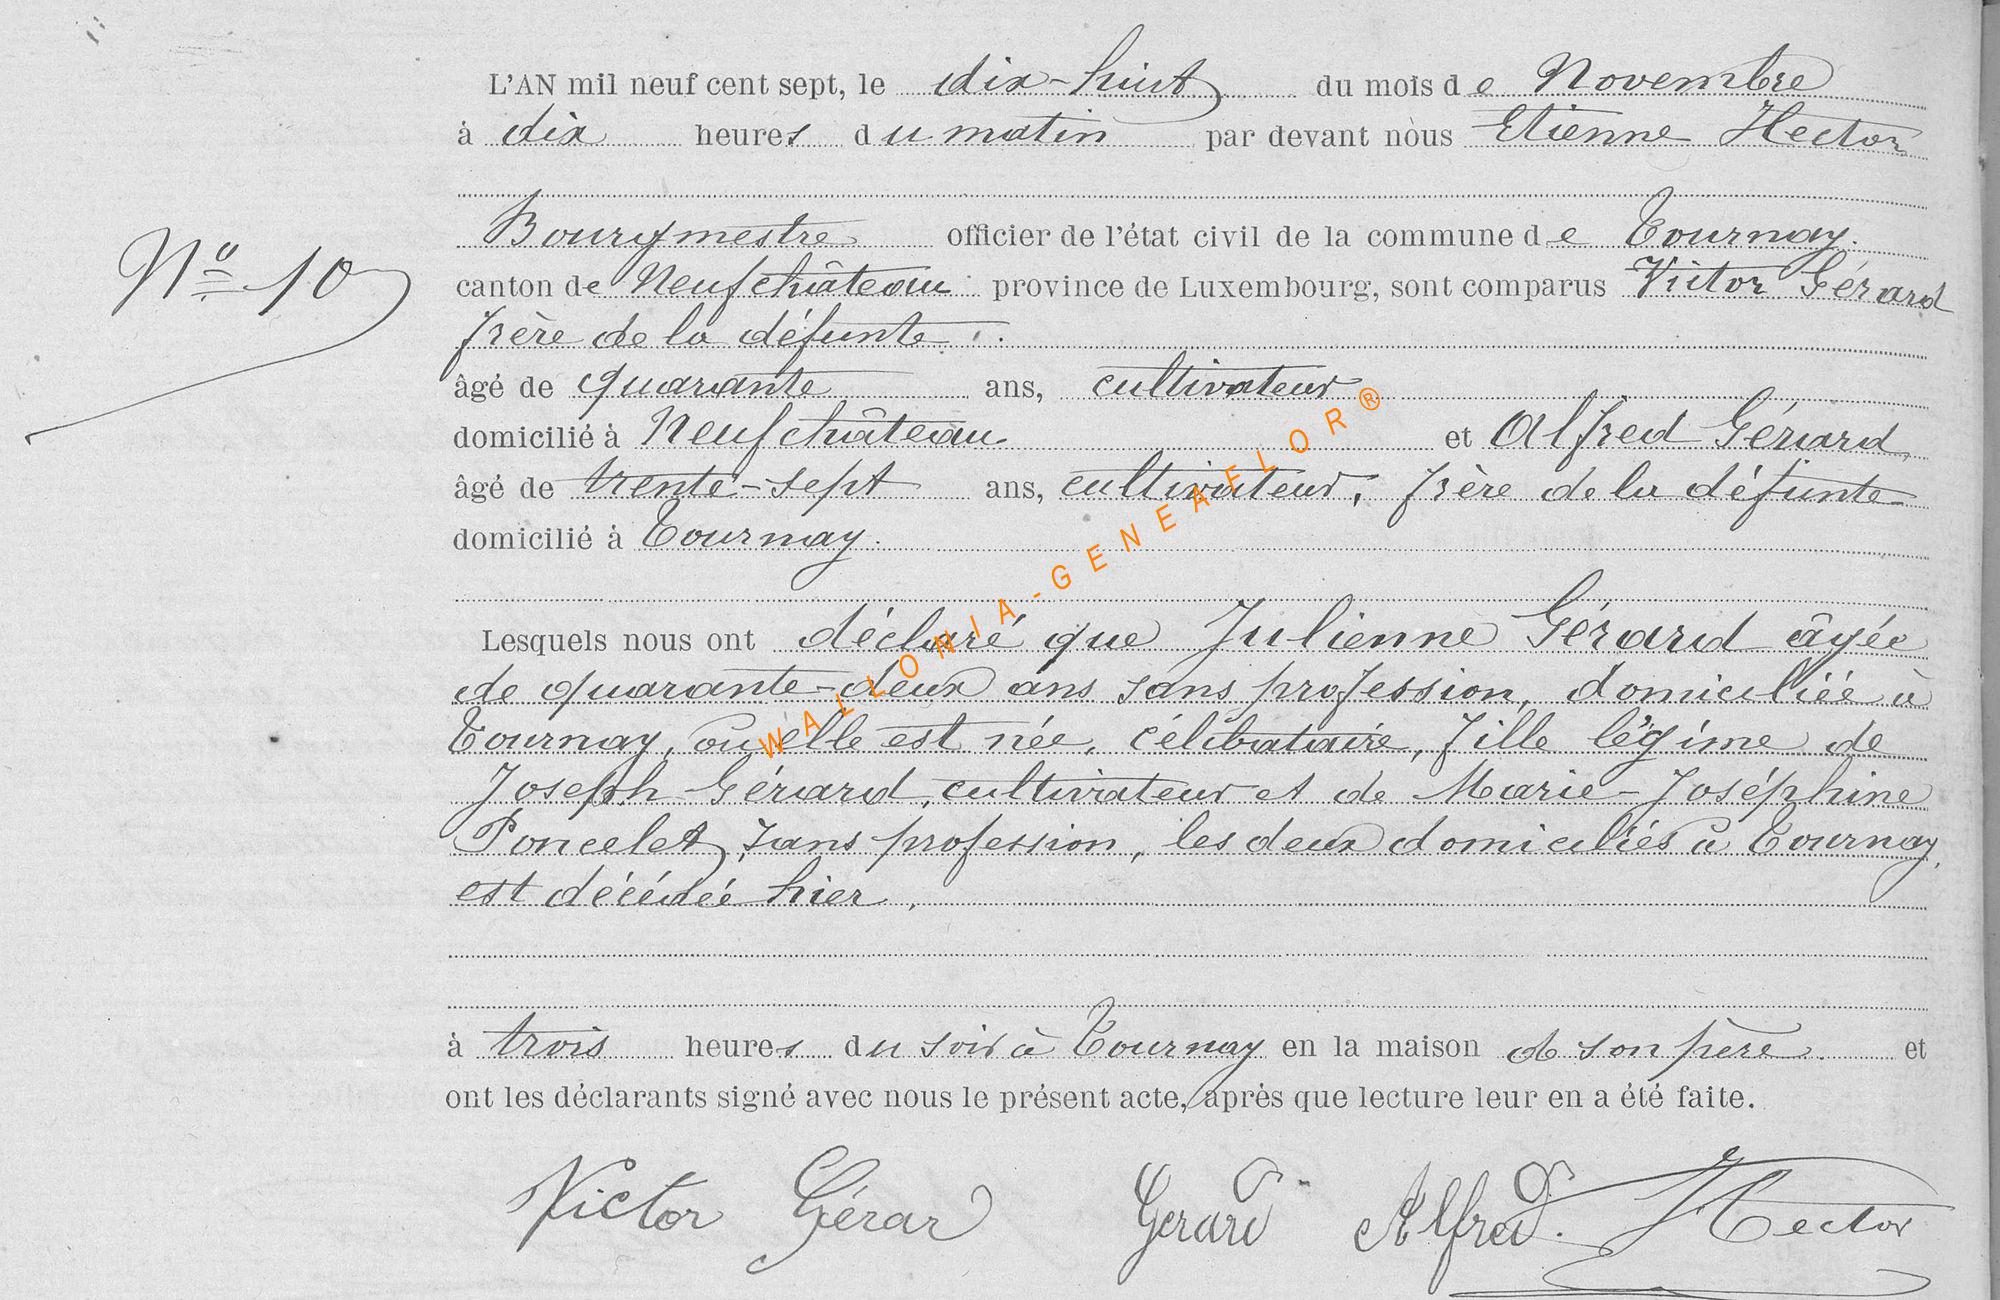 L'AN mil neuf cent sept, le dix-huit du mois de Novembre
à dix heures du matin par devant nous Etienne Hector
Bourgmestre officier de l'état civil de la commune de Tournay.
N° 10
canton de Neufchâteau province de Luxembourg, sont comparus Victor Gérard
frère de la défunte.
âgé de quarante ans, cultivateur
domicilié à Neufchâteau et Alfred Gérard,
âgé de trente-sept ans, cultivateur, frère de la défunte
domicilié à Tournay.
WALLONIA-GENEAFLOR®
Lesquels nous ont déclaré que Julienne Gérard âgée
de quarante-deux ans sans profession, domiciliée à
Tournay, où elle est née, célibataire, fille légime de
Joseph Gérard, cultivateur et de Marie-Joséphine
Poncelet, sans profession, les deux domiciliés à Tournay,
est décédée hier,
à trois heures du soir à Tournay en la maison de son père. et
ont les déclarants signé avec nous le présent acte, après que lecture leur en a été faite.
Victor Gérard Gerard Alfred. Hector